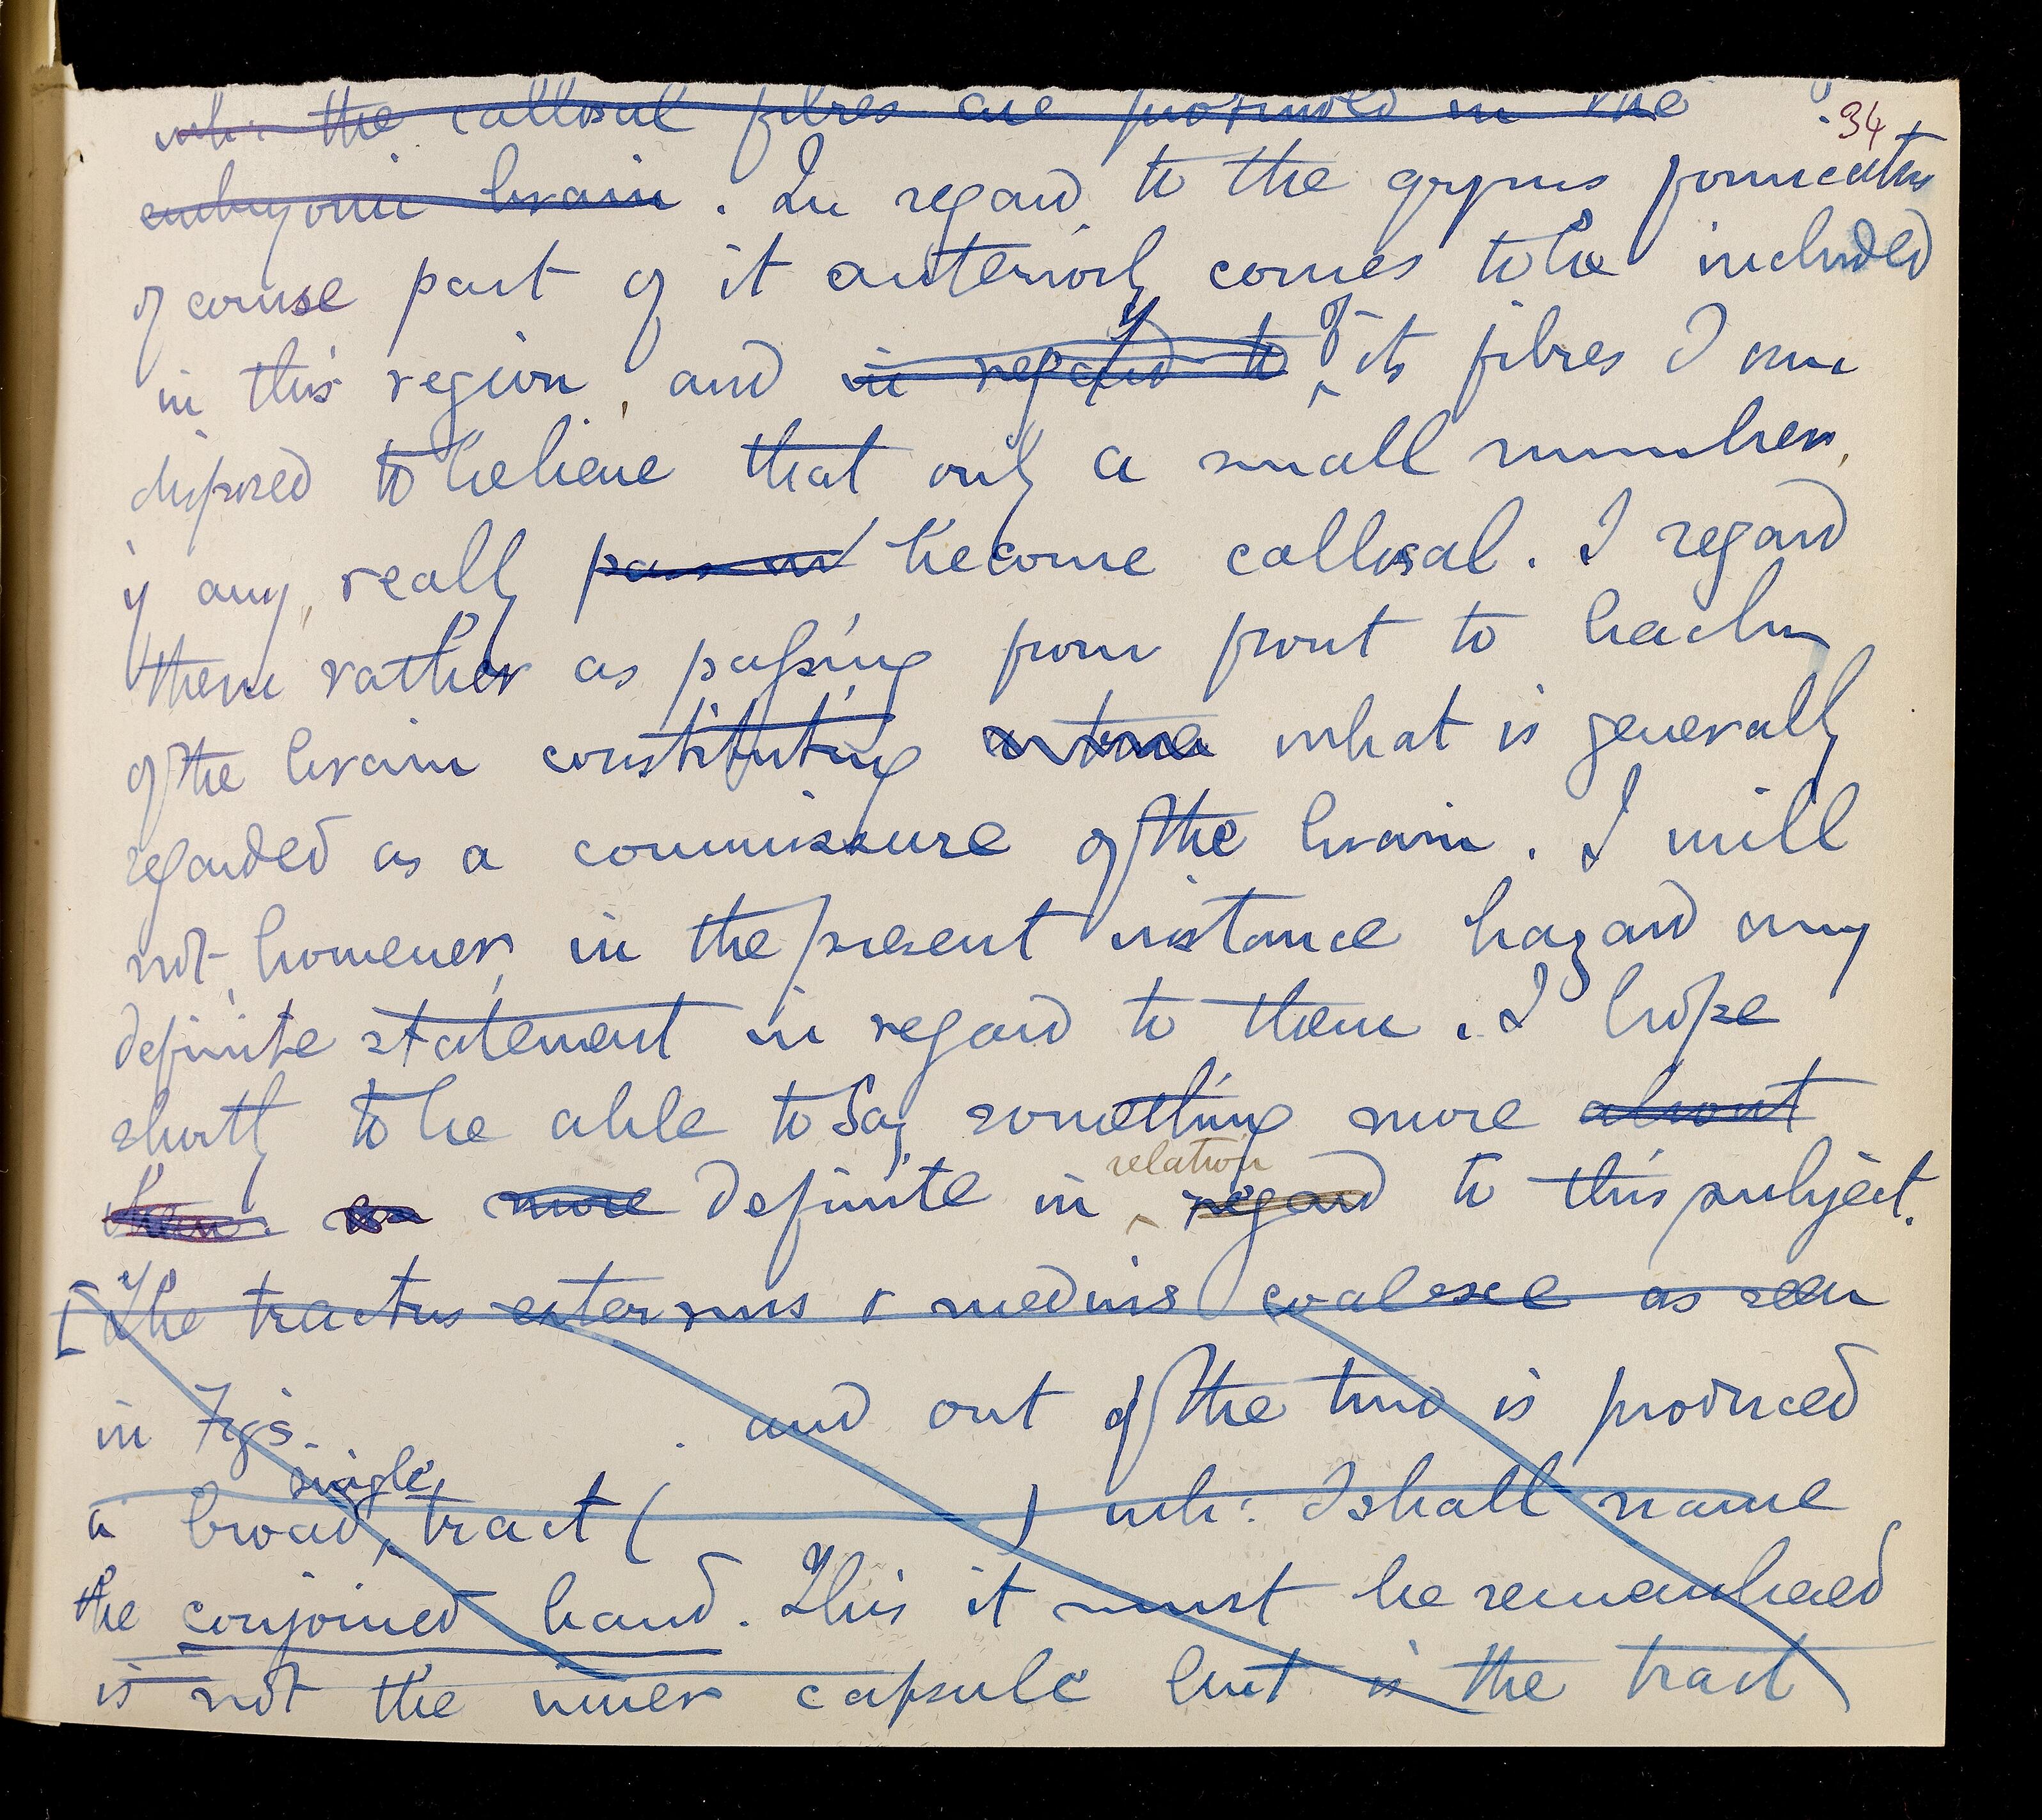 wh: the callosal fibres are provided in the
34
embryonic brain. In regard to the gyrus fornicatus
of course part of it anteriorly comes to be included
in this region, and in regard to of its fibres I am
disposed to believe that only a small number,
if any, really pass in become callosal. I regard
them rather as passing from front to back
of the brain constituting what is generally
regarded as a commissure of the brain. I will
not, however, in the present instance hazard any
definite statement in regard to them. I hope
shortly to be able to say something more about
relation
them more definite in regard to this subject.
[The tractus externus & medius coalesce as seen
in Figs. and out of the two is produced
single
a broad tract ( ) wh: I shall name
the conjoined band. This it must be remembered
is not the inner capsule but is the tract